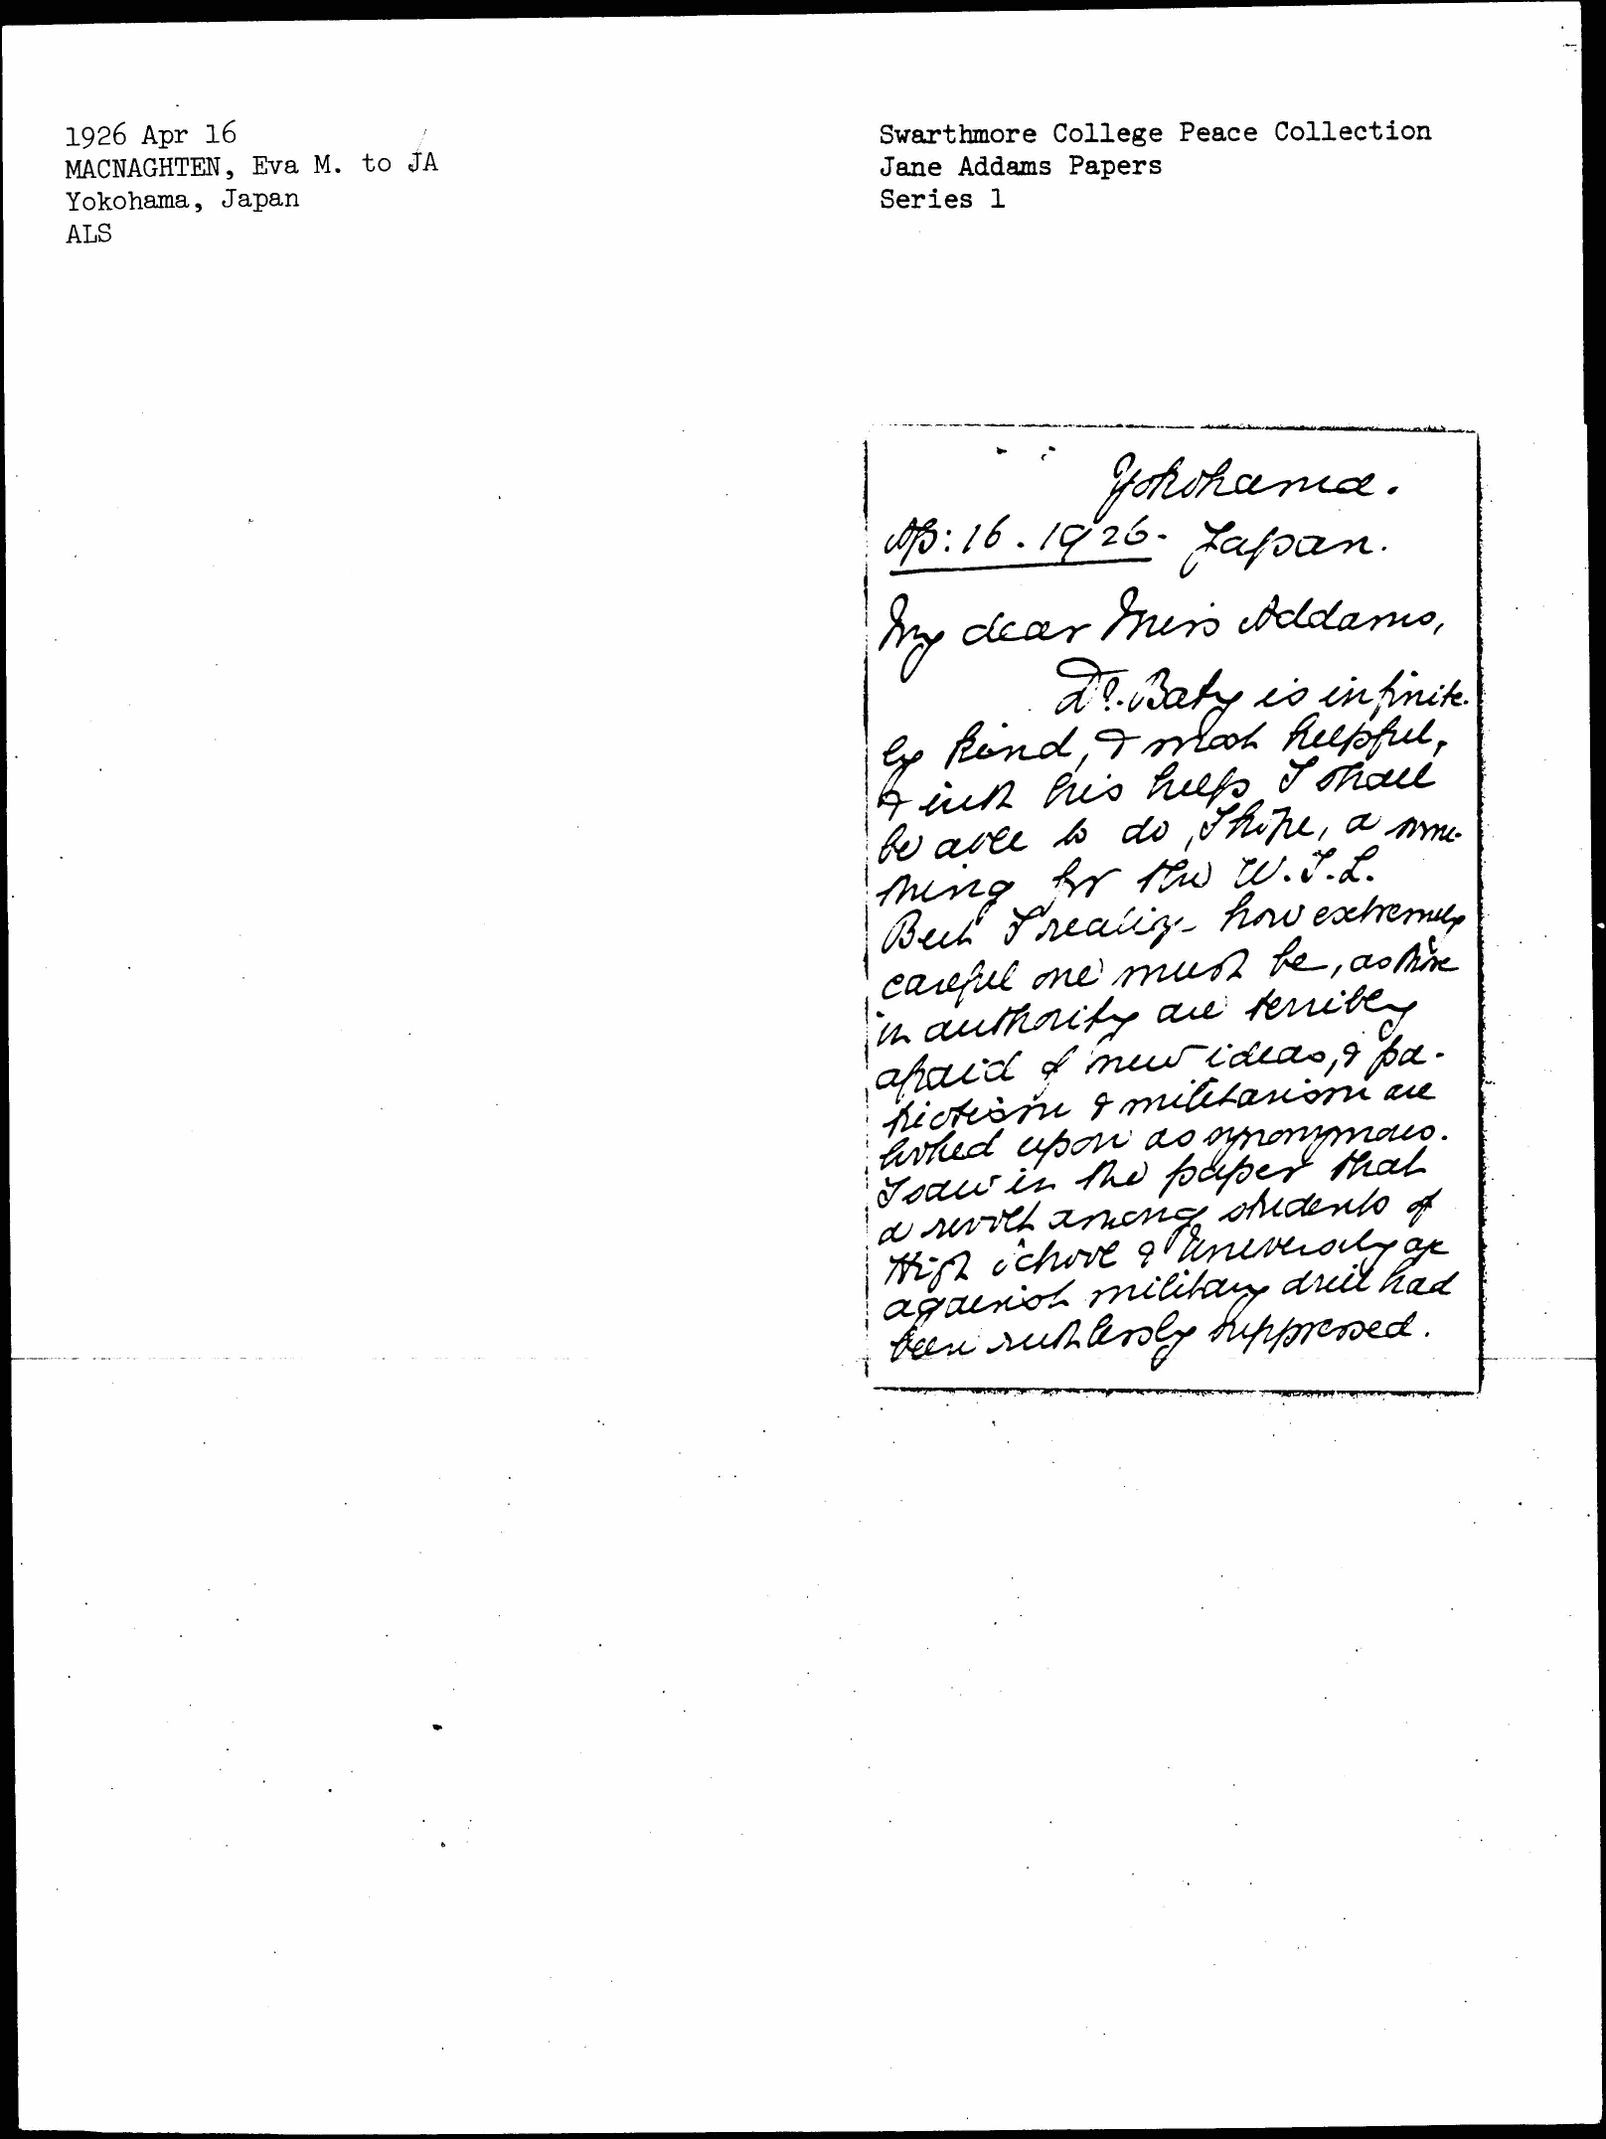 1926 Apr 16
MACNAGHTEN, Eva M. to JA
Yokohama, Japan
ALS
Swarthmore College Peace Collection
Jane Addams Papers
Series 1
Yokohama.
Ap: 16. 1926. Japan.
My dear Miss Addams,
Dr. Baty is infinite-
ly kind, & most helpful,
& with his help I shall
be able to do, I hope, a some-
thing for the W.I.L.
But I realize how extremely
careful one must be, as those
in authority are terribly
afraid of new ideas, & pa-
triotism & militarism are
looked upon as synonymous.
I saw in the paper that
a revolt among students of
High School & University age
against military drill had
been ruthlessly suppressed.